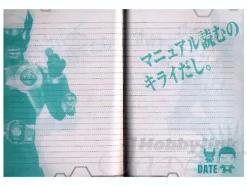 マニュアル読むの
キライだし。
DATE